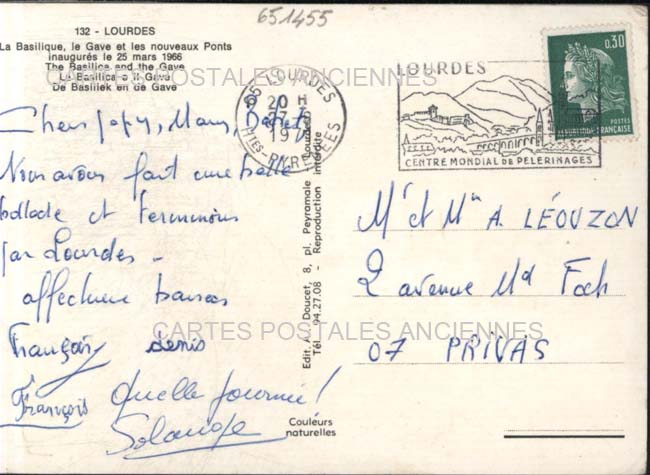 651455
132 - LOURDES
La Basilique, le Gave et les nouveaux Ponts
inaugurés le 25 mars 1966
The Basilica and the Gave
La Basilica e il Gave
De Basiliek en de Gave
CARTES POSTALES ANCIENNES
65 LOURDES
20 H
19
HTES-PYRENEES
LOURDES
CENTRE MONDIAL DE PELERINAGES
0,30
POSTES
REPUBLIQUE FRANÇAISE
Chers papy, Mamy, Babeth
Nous avons fait une belle
ballade et terminons
par Lourdes -
affectueux baisers
François denis
François Quelle journée!
Solange
Edit. A. Doucet, 8, pl. Peyramale - Lourdes
Tél. 94.27.08 - Reproduction interdite
Mr et Mm A. LÉOUZON
2 avenue Mal Foch
07 PRIVAS
CARTES POSTALES ANCIENNES
Couleurs
naturelles